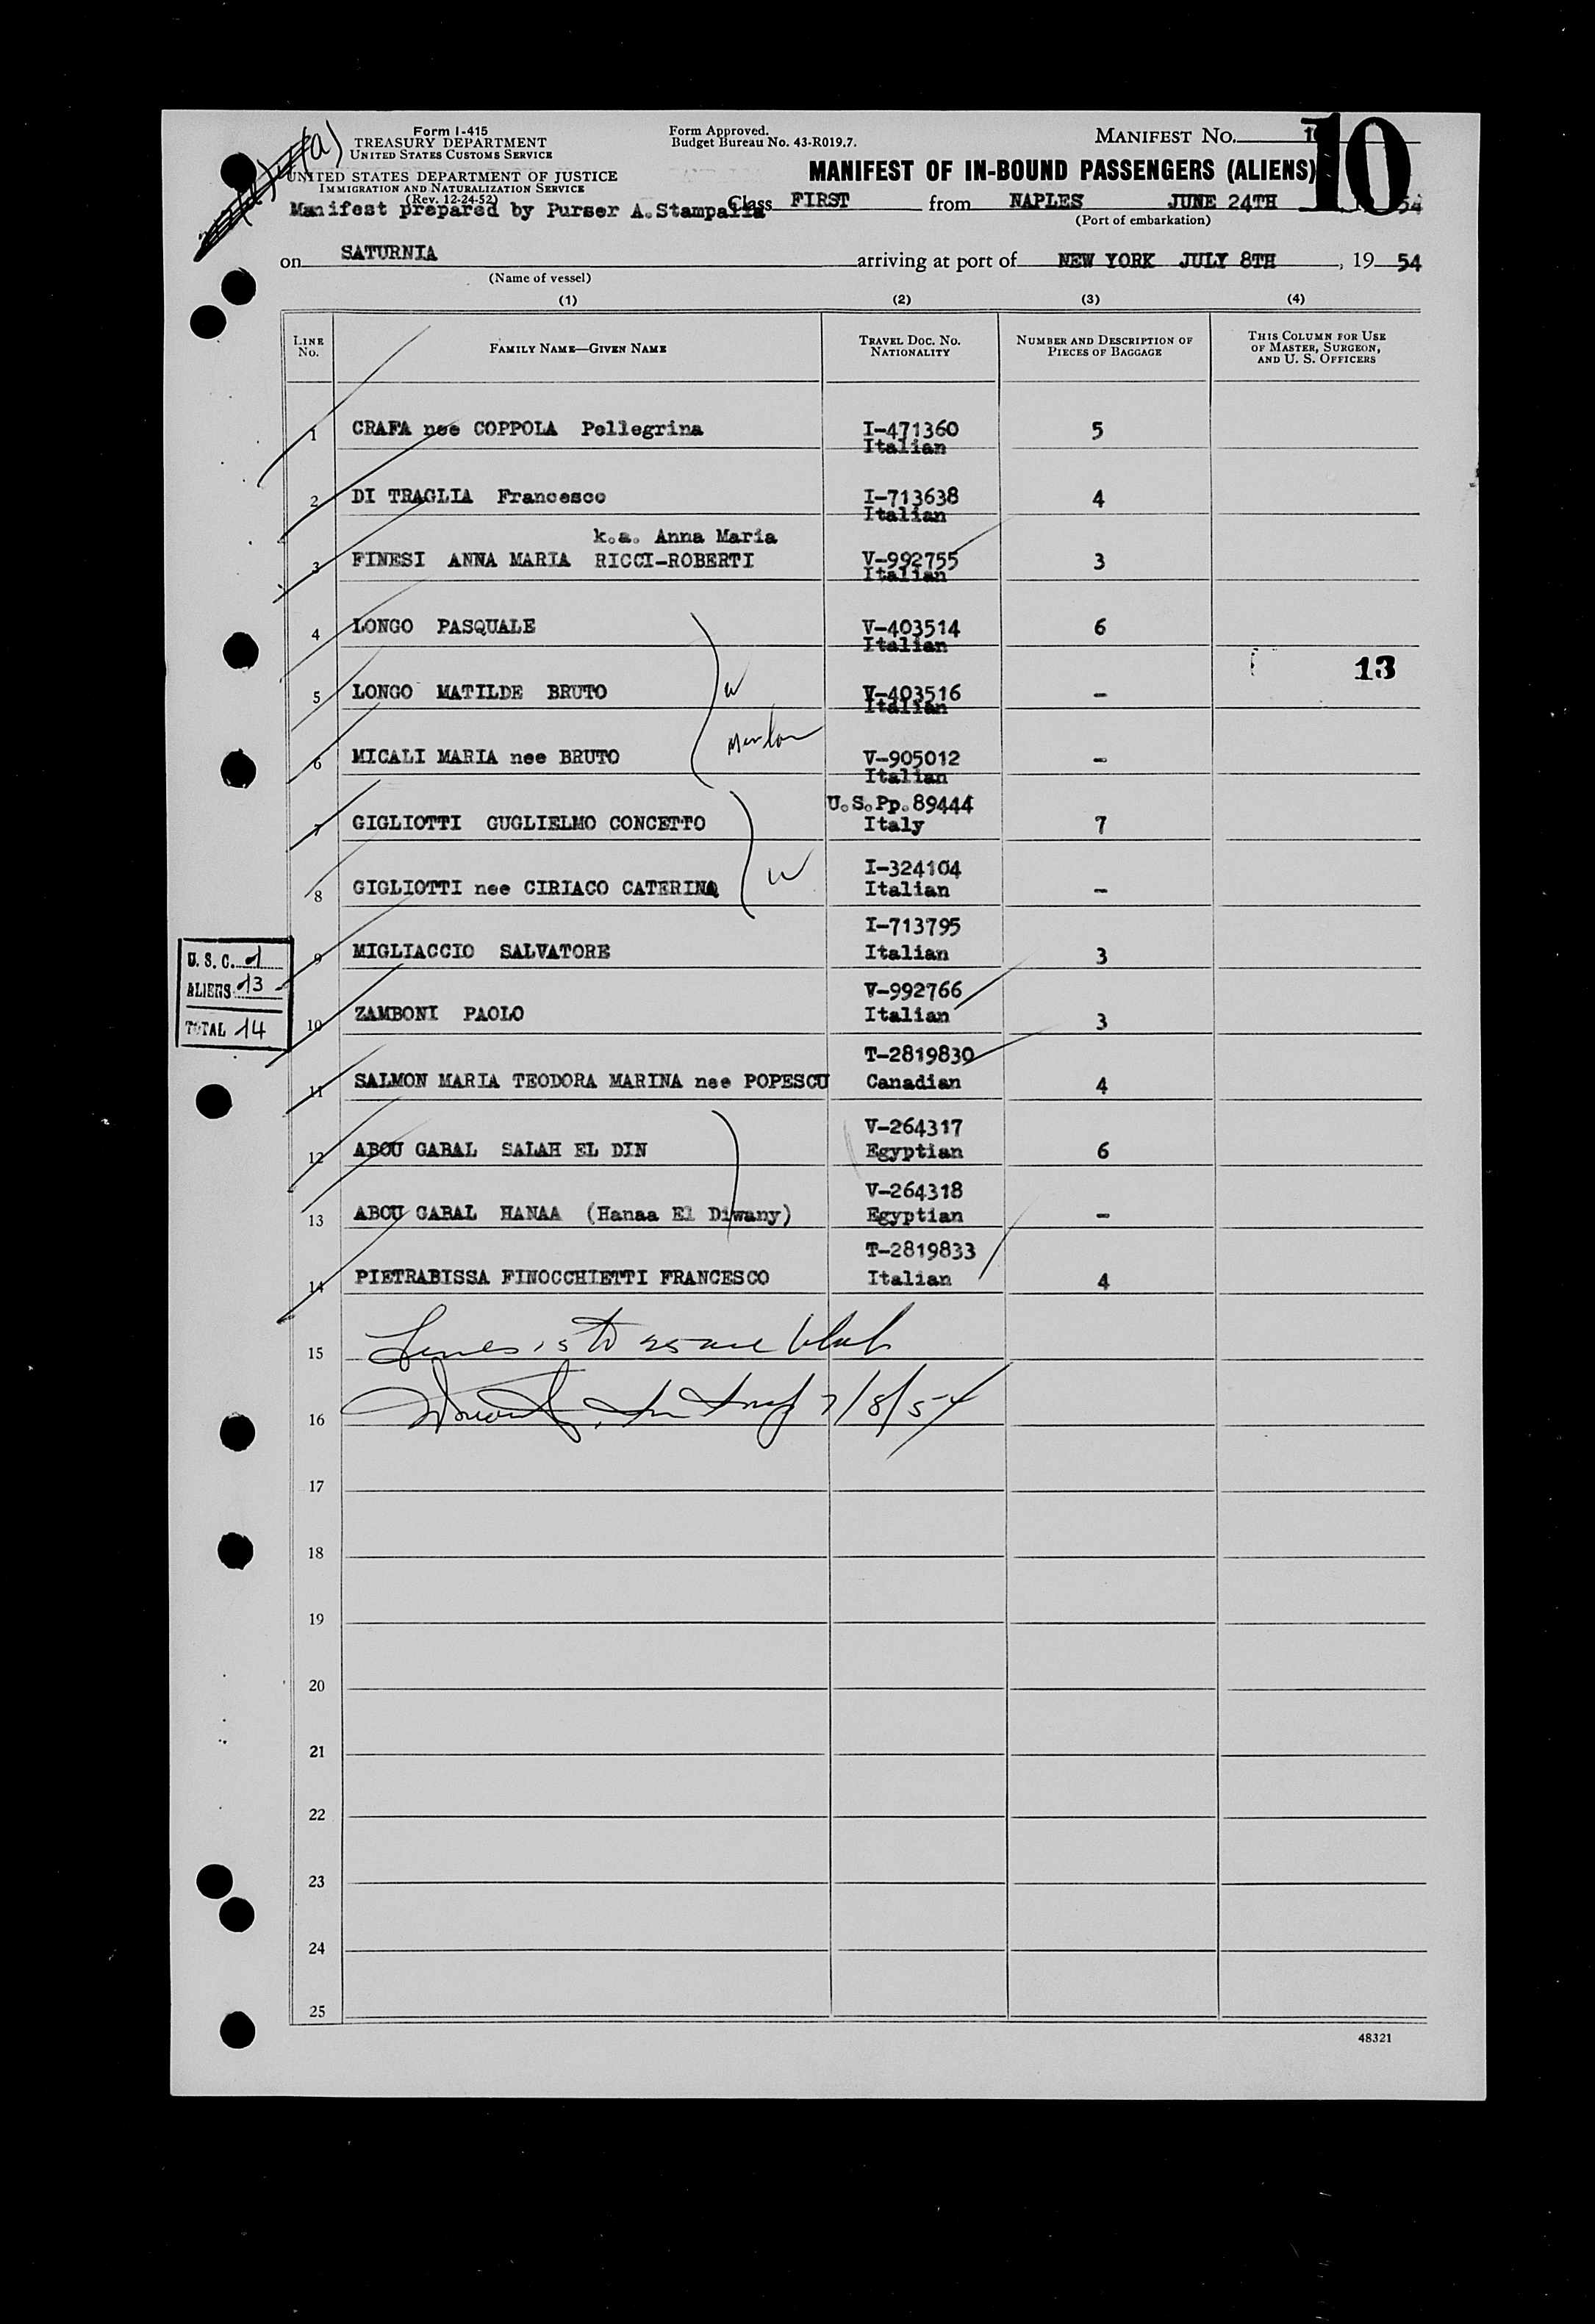 (a)
Form I-415
TREASURY DEPARTMENT
UNITED STATES CUSTOMS SERVICE
UNITED STATES DEPARTMENT OF JUSTICE
IMMIGRATION AND NATURALIZATION SERVICE
(Rev. 12-24-52)
Manifest prepared by Purser A. Stampalia
Form Approved.
Budget Bureau No. 43-R019.7.
MANIFEST NO. 10
MANIFEST OF IN-BOUND PASSENGERS (ALIENS)
Class FIRST from NAPLES JUNE 24TH 54
(Port of embarkation)
on SATURNIA arriving at port of NEW YORK JULY 8TH, 19 54
(Name of vessel)
(1) (2) (3) (4)
LINE No. FAMILY NAME—GIVEN NAME TRAVEL DOC. NO. NATIONALITY NUMBER AND DESCRIPTION OF PIECES OF BAGGAGE THIS COLUMN FOR USE OF MASTER, SURGEON, AND U. S. OFFICERS
1 CRAFA nee COPPOLA Pellegrina I-471360 Italian 5
2 DI TRAGLIA Francesco I-713638 Italian 4
k.a. Anna Maria
3 FINESI ANNA MARIA RICCI-ROBERTI V-992755 Italian 3
4 LONGO PASQUALE V-403514 Italian 6
13
5 LONGO MATILDE BRUTO W V-403516 Italian -
6 MICALI MARIA nee BRUTO V-905012 Italian -
7 GIGLIOTTI GUGLIELMO CONCETTO U.S.Pp.89444 Italy 7
8 GIGLIOTTI nee CIRIACO CATERINA W I-324104 Italian -
9 MIGLIACCIO SALVATORE I-713795 Italian 3
U. S. C. 1
ALIENS 13
TOTAL 14
10 ZAMBONI PAOLO V-992766 Italian 3
11 SALMON MARIA TEODORA MARINA nee POPESCU T-2819830 Canadian 4
12 ABOU GABAL SALAH EL DIN V-264317 Egyptian 6
13 ABOU GABAL HANAA (Hanaa El Diwany) V-264318 Egyptian -
14 PIETRABISSA FINOCCHIETTI FRANCESCO T-2819833 Italian 4
15 Lines 15 to 25 are blank
16 7/8/54
17
18
19
20
21
22
23
24
25
48321